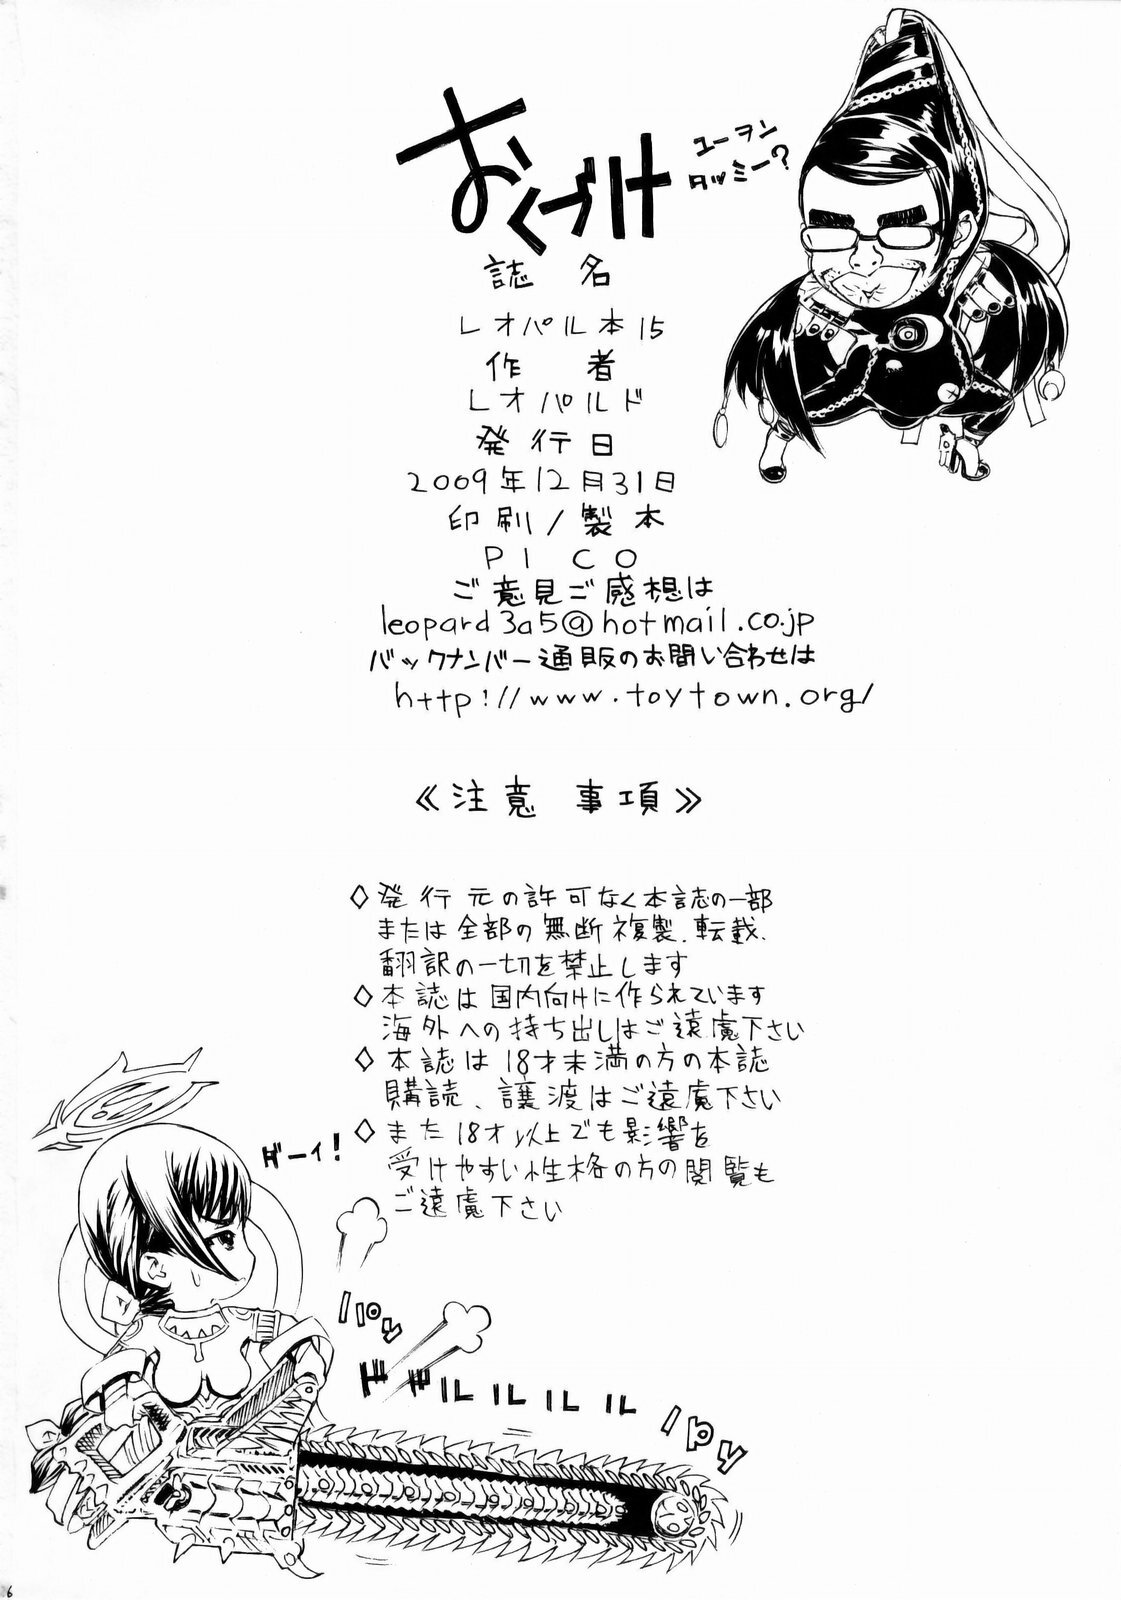 おくづけ
ユーヲン
タッミー?
誌名
レオパル本15
作者
レオパルド
発行日
2009年12月31日
印刷/製本
PICO
ご意見ご感想は
leopard3a5@hotmail.co.jp
バックナンバー通販のお問い合わせは
http://www.toytown.org/
《注意事項》
◇発行元の許可なく本誌の一部
または全部の無断複製、転載、
翻訳の一切を禁止します
◇本誌は国内向けに作られています
海外への持ち出しはご遠慮下さい
◇本誌は18才未満の方の本誌
購読、譲渡はご遠慮下さい
◇また18才以上でも影響を
受けやすい性格の方の閲覧も
ご遠慮下さい
ガーイ!
パパッ
ドドルルルルル
パパッ
6